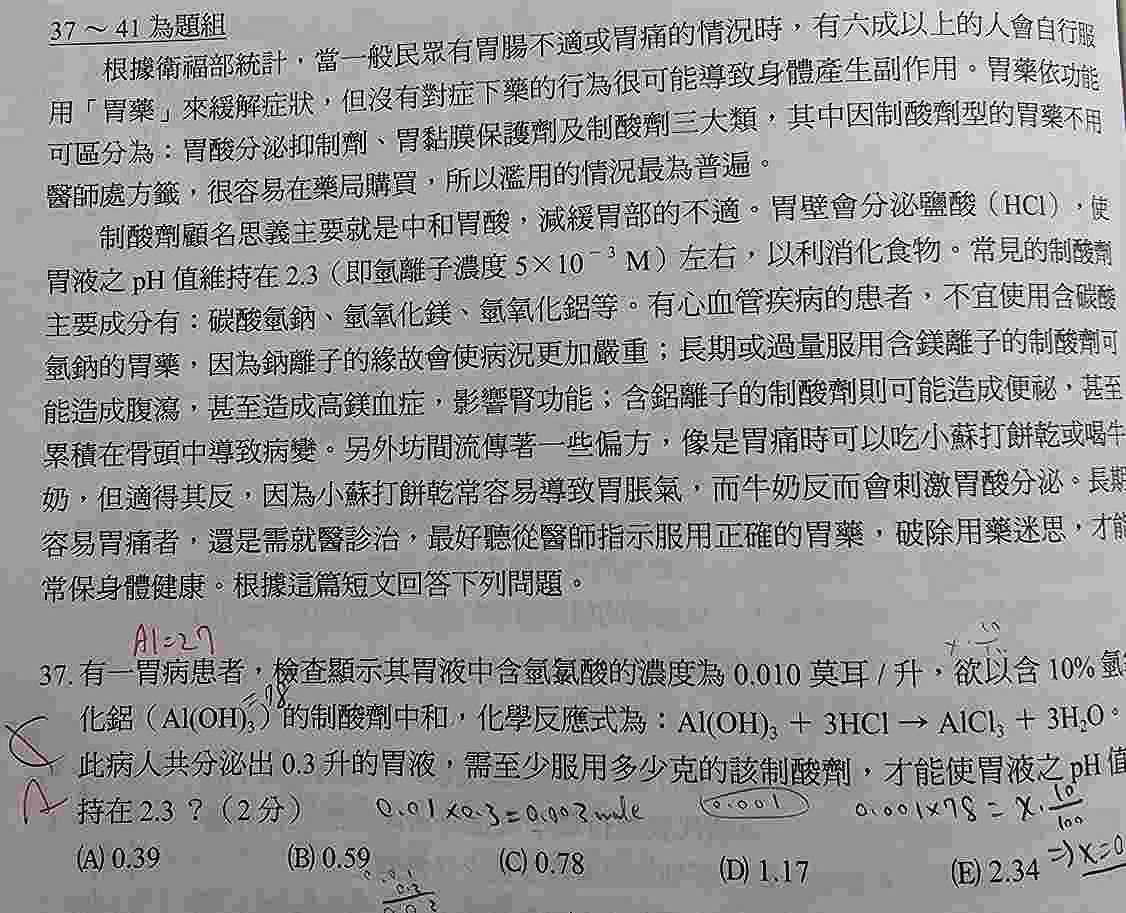 37～41為題組
根據衛福部統計，當一般民眾有胃腸不適或胃痛的情況時，有六成以上的人會自行服
用「胃藥」來緩解症狀，但沒有對症下藥的行為很可能導致身體產生副作用。胃藥依功能
可區分為：胃酸分泌抑制劑、胃黏膜保護劑及制酸劑三大類，其中因制酸劑型的胃藥不用
醫師處方籤，很容易在藥局購買，所以濫用的情況最為普遍。
制酸劑顧名思義主要就是中和胃酸，減緩胃部的不適。胃壁會分泌鹽酸（HCl），使
胃液之 pH 值維持在 2.3（即氫離子濃度 5×10⁻³ M）左右，以利消化食物。常見的制酸劑
主要成分有：碳酸氫鈉、氫氧化鎂、氫氧化鋁等。有心血管疾病的患者，不宜使用含碳酸
氫鈉的胃藥，因為鈉離子的緣故會使病況更加嚴重；長期或過量服用含鎂離子的制酸劑可
能造成腹瀉，甚至造成高鎂血症，影響腎功能；含鋁離子的制酸劑則可能造成便祕，甚至
累積在骨頭中導致病變。另外坊間流傳著一些偏方，像是胃痛時可以吃小蘇打餅乾或喝牛
奶，但適得其反，因為小蘇打餅乾常容易導致胃脹氣，而牛奶反而會刺激胃酸分泌。長期
容易胃痛者，還是需就醫診治，最好聽從醫師指示服用正確的胃藥，破除用藥迷思，才能
常保身體健康。根據這篇短文回答下列問題。
Al=27
37. 有一胃病患者，檢查顯示其胃液中含氫氯酸的濃度為 0.010 莫耳 / 升，欲以含 10% 氫
=78
化鋁（Al(OH)₃）的制酸劑中和，化學反應式為：Al(OH)₃ + 3HCl → AlCl₃ + 3H₂O。
此病人共分泌出 0.3 升的胃液，需至少服用多少克的該制酸劑，才能使胃液之 pH 值
持在 2.3？（2 分）
A
0.01×0.3=0.003 mole
0.001
0.001×78 = x·10/100
(A) 0.39 (B) 0.59 (C) 0.78 (D) 1.17 (E) 2.34
⇒x=0